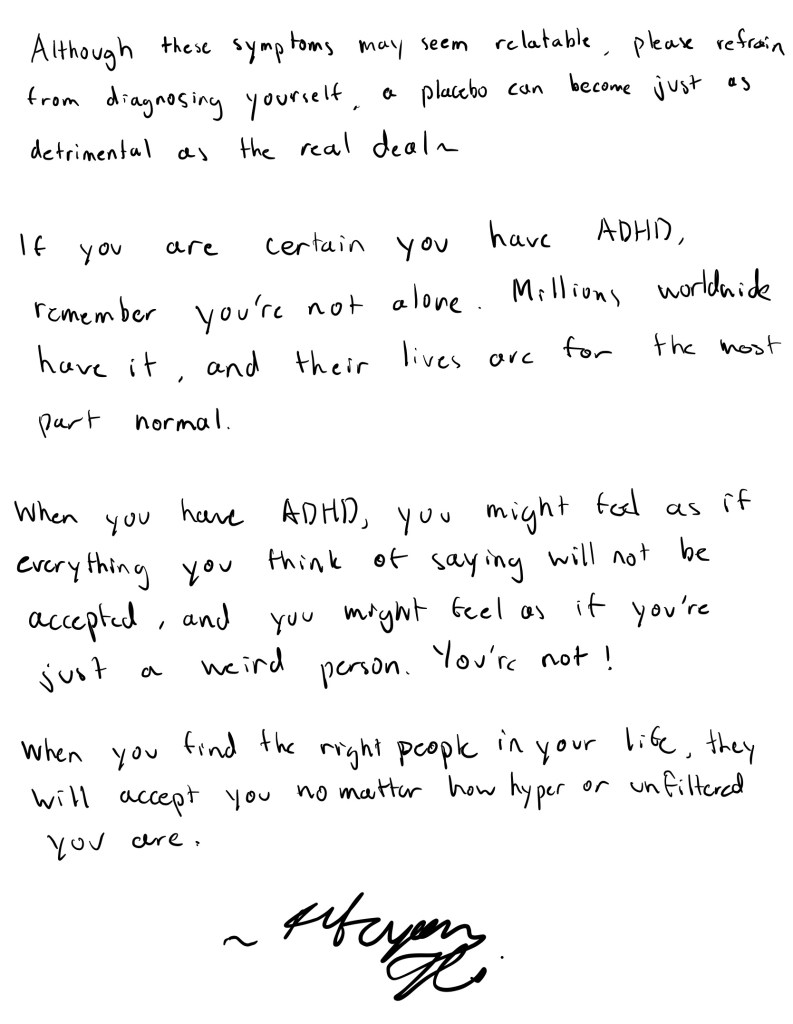 Although these symptoms may seem relatable, please refrain
from diagnosing yourself, a placebo can become just as
detrimental as the real deal~
If you are certain you have ADHD,
remember you're not alone. Millions worldwide
have it, and their lives are for the most
part normal.
When you have ADHD, you might feel as if
everything you think of saying will not be
accepted, and you might feel as if you're
just a weird person. You're not!
When you find the right people in your life, they
will accept you no matter how hyper or unfiltered
you are.
~